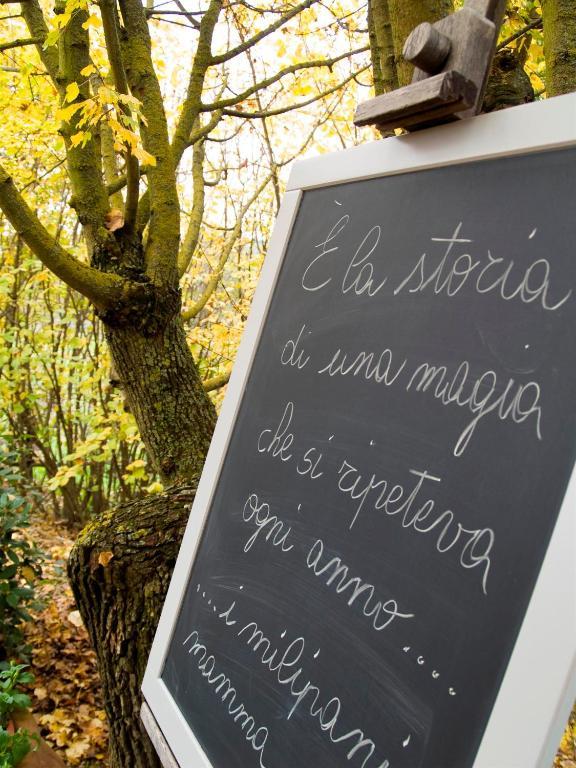 È la storia
di una magia
che si ripeteva
ogni anno....
....i milipani
mamma